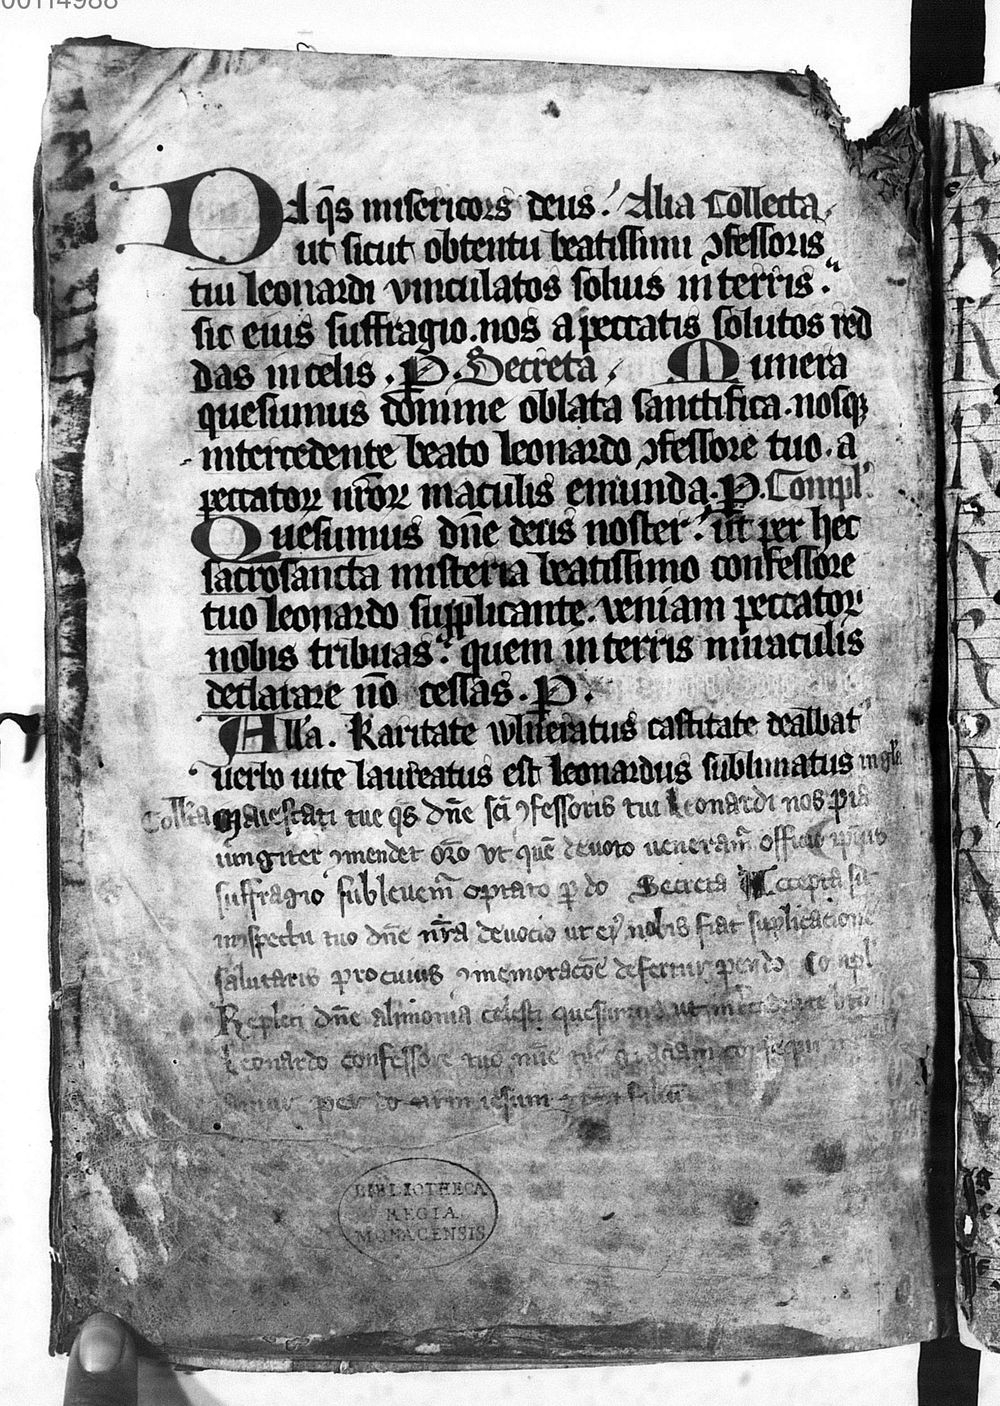 00114988
DA q̄s misericors deus. Alia Collecta
ut sicut obtentu beatissimi ꝯfessoris
tui leonardi vinculatos soluis in terris.
sic eius suffragio. nos a peccatis solutos red
das in celis. P. Secreta, Munera
quesumus domine oblata sanctifica. nosqꝫ
intercedente beato leonardo ꝯfessore tuo. a
peccatoꝝ nr̄oꝝ maculis emunda. P. Compl'
Quesumus dn̄e deus noster. ut per hec
sacrosancta misteria beatissimo confessore
tuo leonardo supplicante. veniam peccatoꝝ
nobis tribuas. quem in terris miraculis
declarare nō cessas. P.
Alla. Karitate wlneratus castitate dealbat'
uerbo uite laureatus est leonardus sublimatus in gl'a
Coll'ta Maiestati tue q̄s dn̄e sc̄i ꝯfessoris tui Leonardi nos pia
iungiter ꝯmendet or̄o vt quē deuoto ueneram̄ officio ip̄ius
suffragio subleuem̄ optato ꝑ do Secreta Accepta sit
in ꝯspectu tuo dn̄e nr̄a deuocio ut eiꝰ nobis fiat suplicatione
salutaris pro cuius ꝯmemoracōe defertur per do Compl'
Repleti dn̄e alimonia celesti quesumus ut
Leonardo confessore tuo graciam consequi
per do
BIBLIOTHECA
REGIA
MONACENSIS